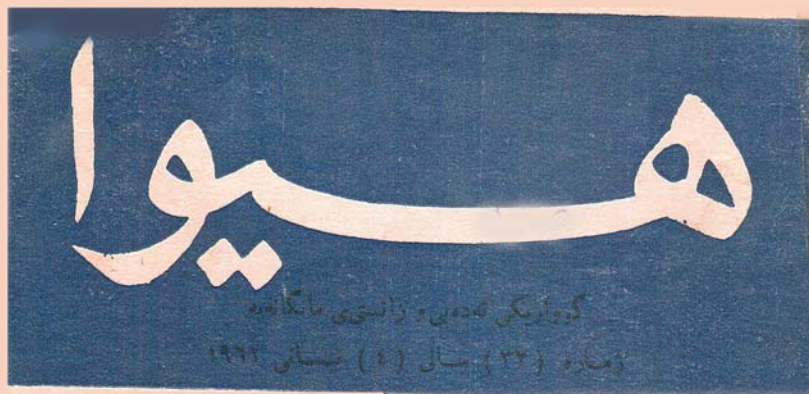 هیوا
گۆوارێکی ئەدەبی و زانستی مانگانەیە
ژمارە (٣٣) ساڵی (٤) نیسانی ١٩٦١